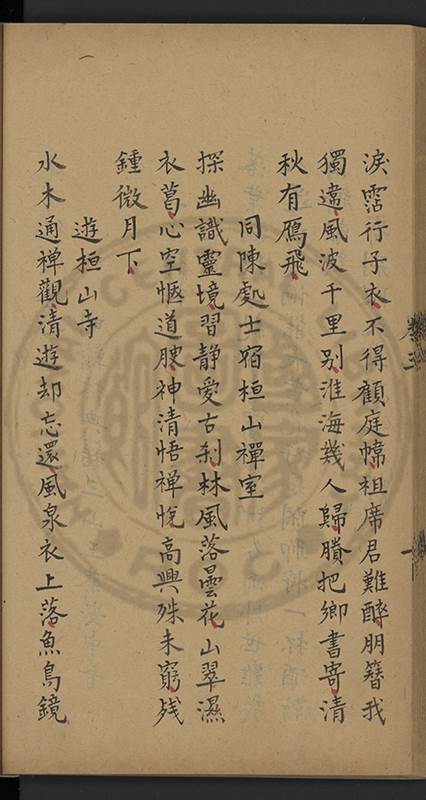 淚霑行子衣不得顧庭幃祖席君難醉朋簪我
獨違風波千里別淮海幾人歸賸把鄉書寄清
秋有鴈飛
同陳處士宿桓山禪室
探幽識靈境習靜愛古刹林風落曇花山翠濕
衣葛心空愜道腴神清悟禅悅高興殊未窮残
鍾微月下
遊桓山寺
水木通禅觀清遊却忘還風泉衣上落魚鳥鏡